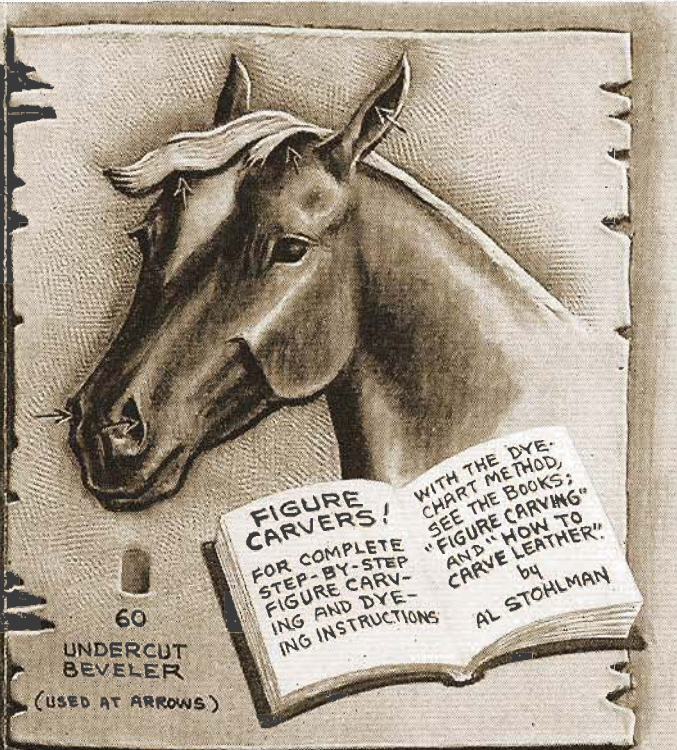 FIGURE
CARVERS!
FOR COMPLETE
STEP-BY-STEP
FIGURE CARV-
ING AND DYE-
ING INSTRUCTIONS
WITH THE DYE-
CHART METHOD,
SEE THE BOOKS;
"FIGURE CARVING"
AND "HOW TO
CARVE LEATHER".
by
AL STOHLMAN
60
UNDERCUT
BEVELER
(USED AT ARROWS)